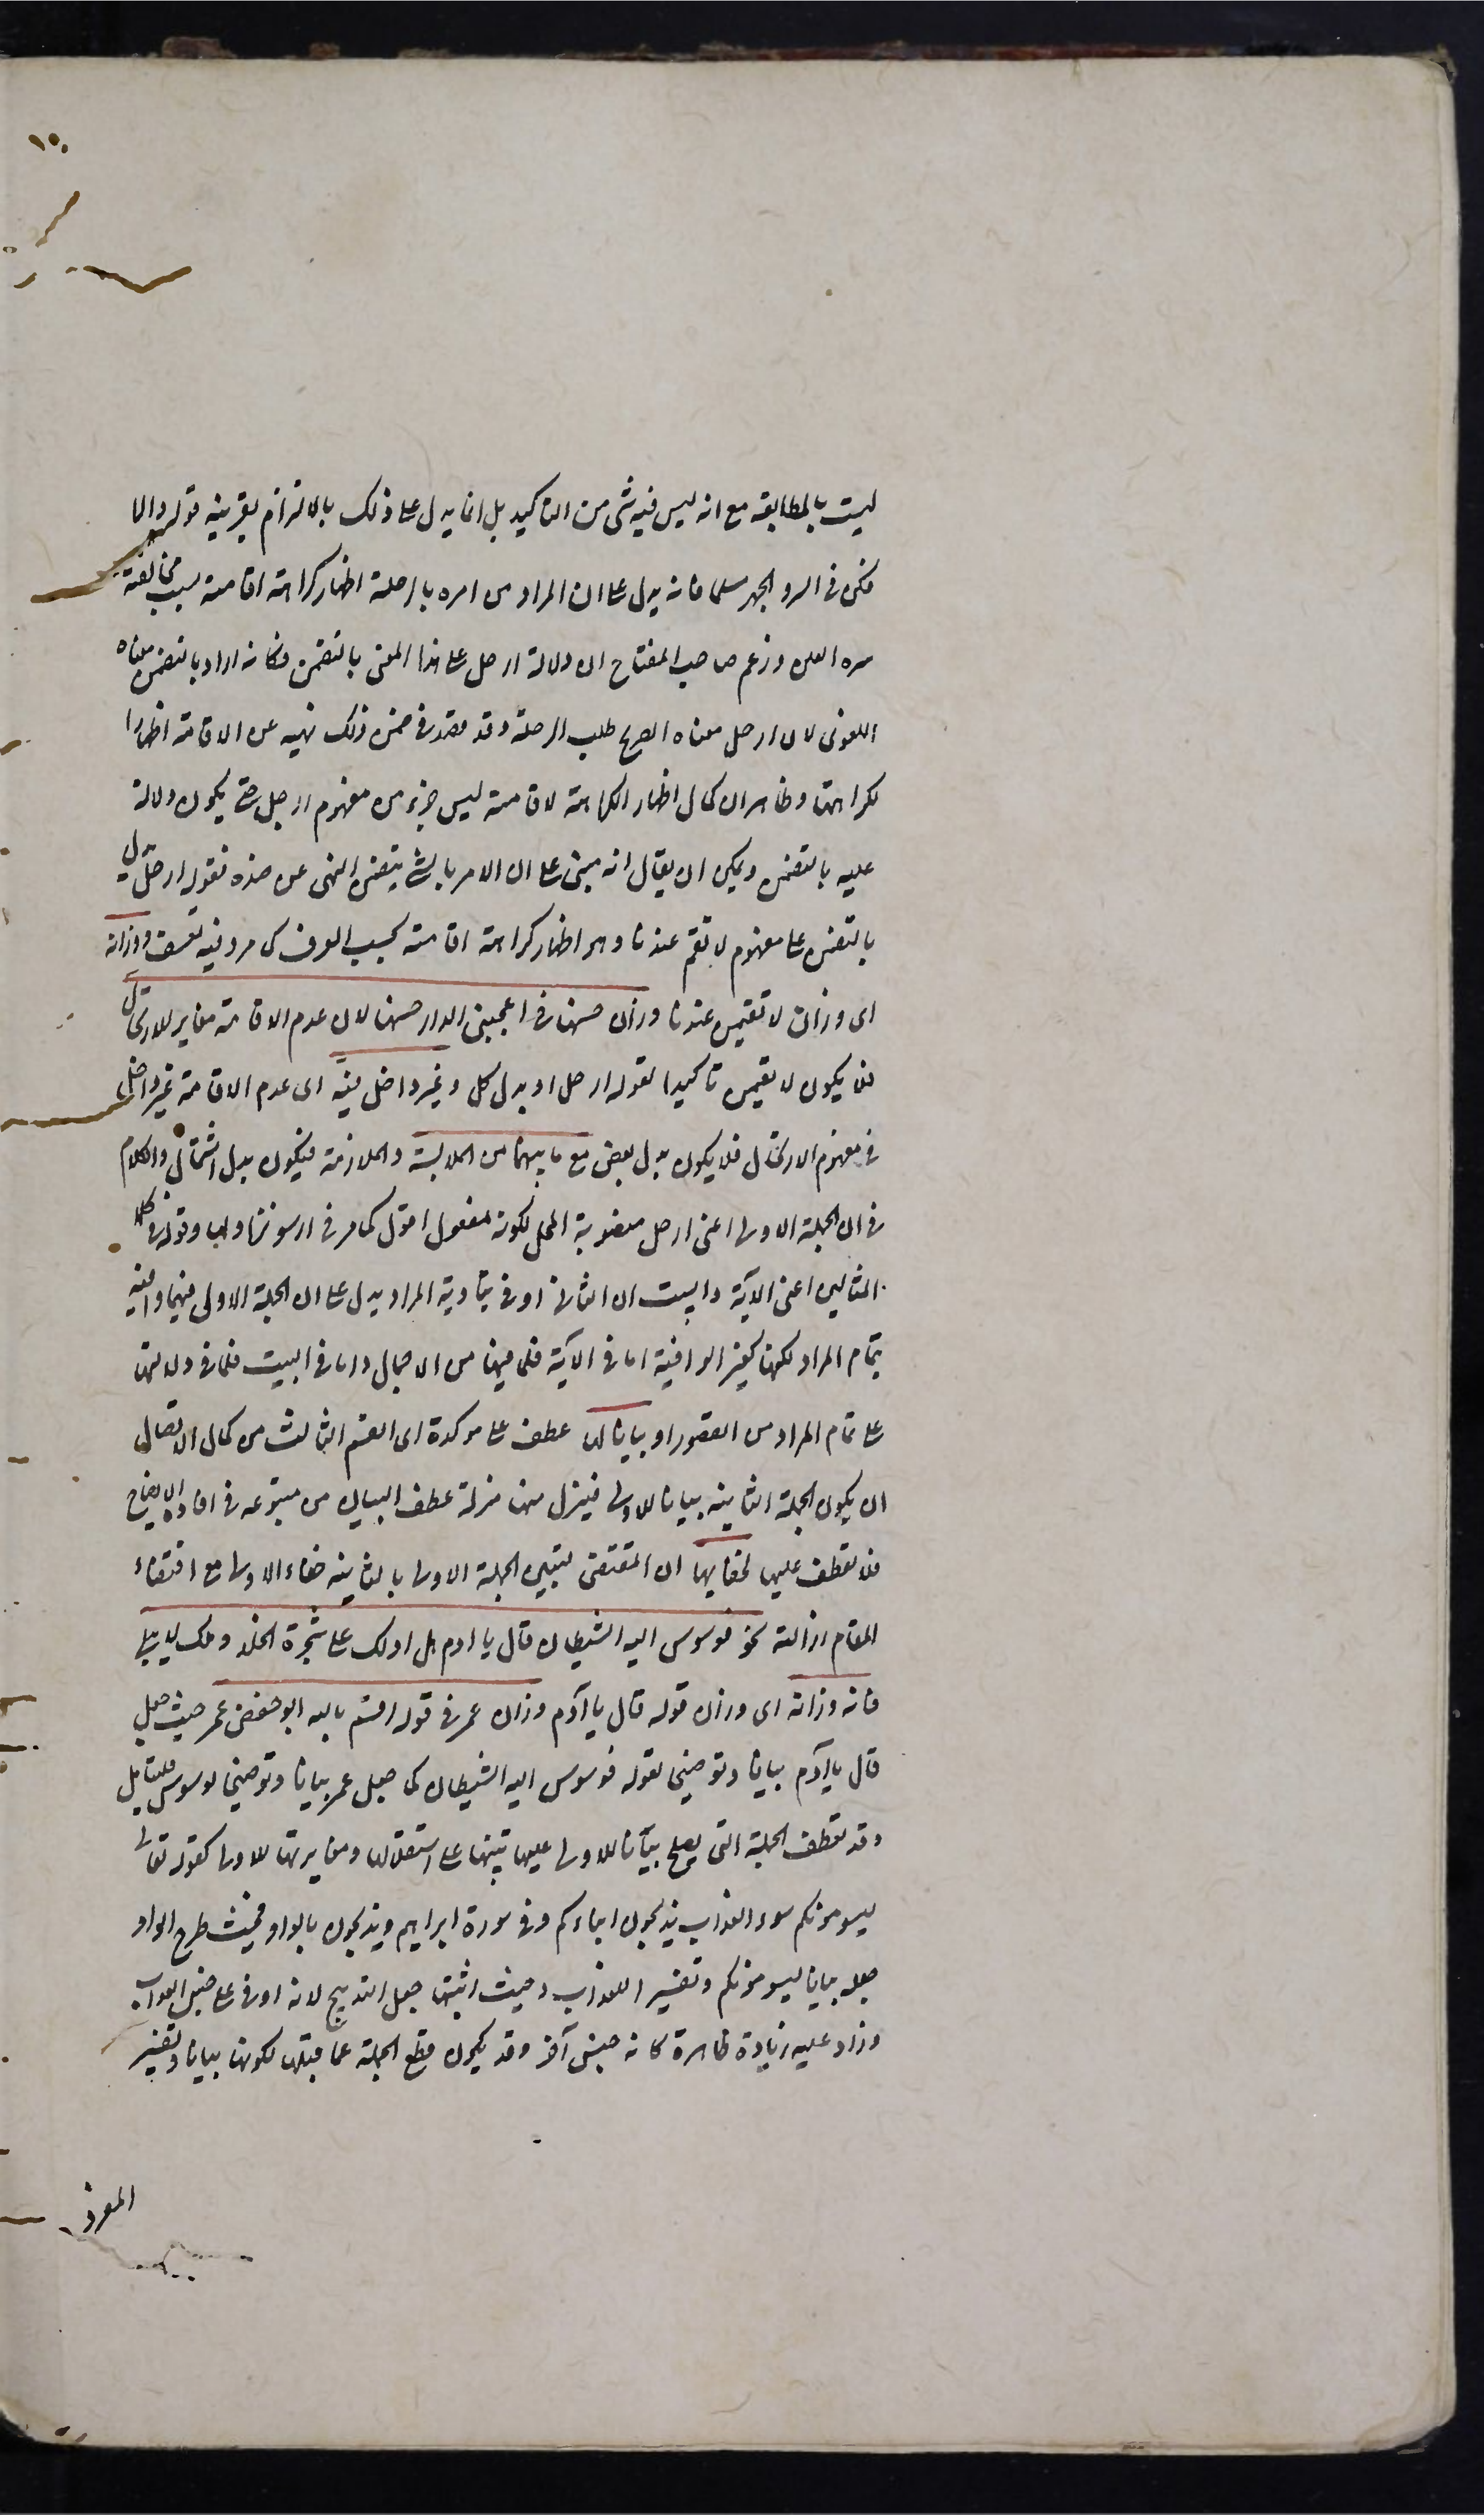 ١٥٠
ليست بالمطابقة مع انه ليس فيه شئ من التاكيد بل انما يدل على ذلك بالالتزام بقرينة قوله والا
فكن في السر والجهر مسلما فانه يدل على ان المراد من امره بالرحلة اظهار كراهة اقامته بسبب مخالفة
سره العلن وزعم صاحب المفتاح ان دلالة ارحل على هذا المعنى بالتضمن وكانه اراد بالتضمن معناه
اللغوى لان ارحل معناه الصريح طلب الرحلة وقد قصد في ضمن ذلك نهيه عن الاقامة اظهارا
لكراهتها وظاهر ان كمال اظهار الكراهة لاقامته ليس جزء من مفهوم ارحل حتى يكون دلالة
عليه بالتضمن ويمكن ان يقال انه مبنى على ان الامر بالشئ يتضمن النهى عن ضده فقوله ارحل يدل
بالتضمن على مفهوم لا تقم عندنا وهو اظهار كراهة اقامته بحسب العرف كما مر وفيه تعسف ووزانه
اى وزان لا تقيمن عندنا وزان حسنها في اعجبنى الدار حسنها لان عدم الاقامة مغاير للارتحال
فلا يكون لا تقيمن تاكيدا لقوله ارحل او بدل كل وغير داخل فيه اى عدم الاقامة غير داخل
في مفهوم الارتحال فلا يكون بدل بعض مع ما بينهما من الملابسة والملازمة فيكون بدل اشتمال والكلام
في ان الجملة الاولى اعنى ارحل منصوبة المحل لكونه مفعول اقول كما مر في ارسوا نزاولها وقوله في كلا
المثالين اعنى الآية والبيت ان الثانى اوفى بتادية المراد يدل على ان الجملة الاولى فيهما وافية
بتمام المراد لكنها كغير الوافية اما في الآية فلما فيها من الاجمال واما في البيت فلما في دلالتها
على تمام المراد من القصور او بيانا لها عطف على مؤكدة اى القسم الثالث من كمال الاتصال
ان يكون الجملة الثانية بيانا للاولى فينزل منها منزلة عطف البيان من متبوعه في افادة الايضاح
فلا تعطف عليها لخفائها اى المقتضى لتبيين الجملة الاولى بالثانية خفاء الاولى مع اقتضاء
المقام ازالته نحو فوسوس اليه الشيطان قال يا ادم هل ادلك على شجرة الخلد وملك لا يبلى
فانه وزانه اى وزان قوله قال يا آدم وزان عمر في قوله اقسم بالله ابو حفص عمر حيث جعل
قال يا آدم بيانا وتوضيحا لقوله فوسوس اليه الشيطان كما جعل عمر بيانا وتوضيحا
وقد تعطف الجملة التى يصلح بيانا للاولى عليها تنبيها على استقلالها ومغايرتها للاولى كقوله تعالى
يسومونكم سوء العذاب يذبحون ابناءكم وفي سورة ابراهيم ويذبحون بالواو فحيث طرح الواو
جعله بيانا ليسومونكم وتفسيرا للعذاب وحيث اثبتها جعل التذبيح لانه اوفى على جنس العذاب
وزاد عليه زيادة ظاهرة كانه جنس آخر وقد يكون قطع الجملة عما قبلها لكونها بيانا وتفسيرا